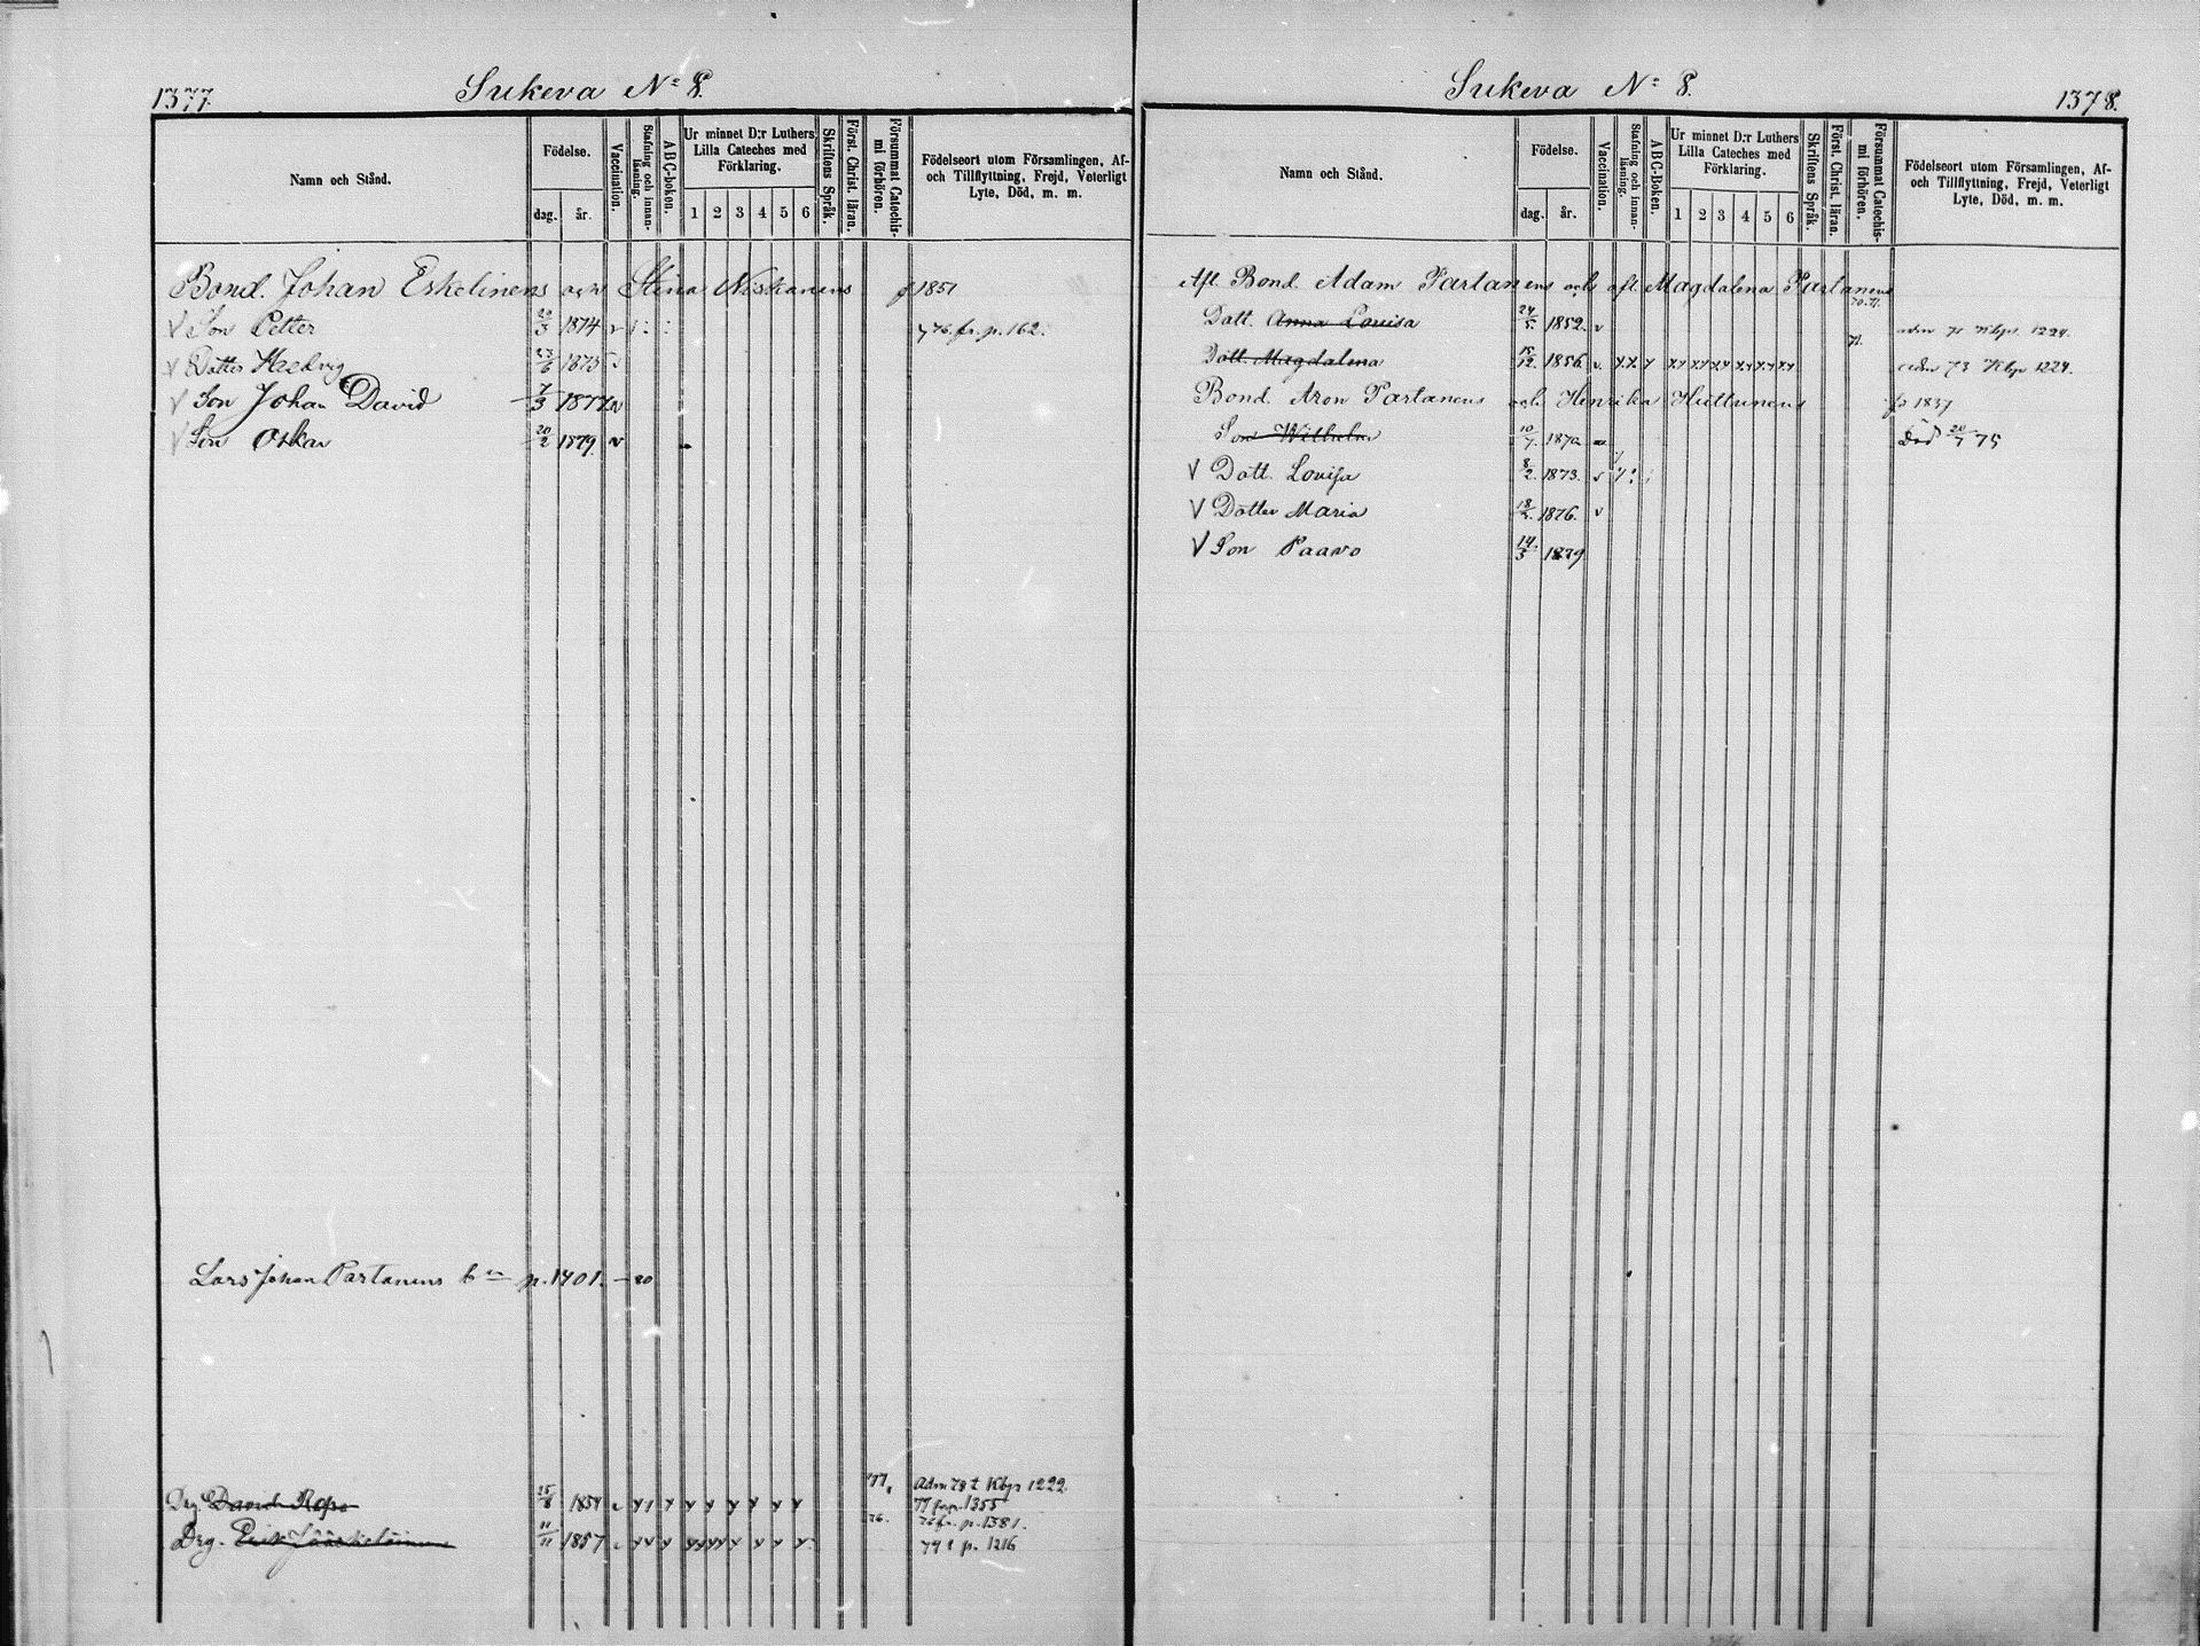 1377.
Sukeva Nº 8.
Namn och Stånd.
Födelse.
dag.
år.
Vaccination.
Stafning och innanläsning.
ABC-boken.
Ur minnet D:r Luthers Lilla Cateches med Förklaring.
1 2 3 4 5 6
Skriftens Språk.
Först. Christ. läran.
Försummat Catechismi förhören.
Födelseort utom Församlingen, Af- och Tillflyttning, Frejd, Veterligt Lyte, Död, m. m.
Bond. Johan Eskelinens och Stina Niskanens p 1851
V Son Petter 20/3 1874 v 76 fr. p. 162.
V Dotter Hedvig 23/6 1875
V Son Johan David 7/3 1877 v
V Son Oskar 20/2 1879. v
Lars Johan Partanens bn p. 1401. — 80
77. Adm 78 t Kbgr 1222
Drg. David Ropo 25/8 1854 77 fr. p. 1355
76. 76 fr. p. 1381.
Drg. Erik Jääskeläinen 11/11 1857 79 t p. 1216
Sukeva Nº 8.
1378.
Namn och Stånd.
Födelse.
dag.
år.
Vaccination.
Stafning och innanläsning.
ABC-Boken.
Ur minnet D:r Luthers Lilla Cateches med Förklaring.
1 2 3 4 5 6
Skriftens Språk.
Först. Christ. läran.
Försummat Catechismi förhören.
Födelseort utom Församlingen, Af- och Tillflyttning, Frejd, Veterligt Lyte, Död, m. m.
Afl. Bond. Adam Partanens och afl. Magdalena Partanens
70. 71.
Dott. Anna Louisa 24/5. 1852. v 71 Kbgr. 1224.
71.
Dott. Magdalena 15/12. 1856. v. 73 Kbgr 1224.
Bond. Aron Partanens och Henrika Huttunens p 1837
Son Wilhelm 10/7. 1870. Död 20/7 75
V Dott. Lovisa 8/2. 1873.
V Dotter Maria 18/2. 1876. v
V Son Paavo 14/3 1879